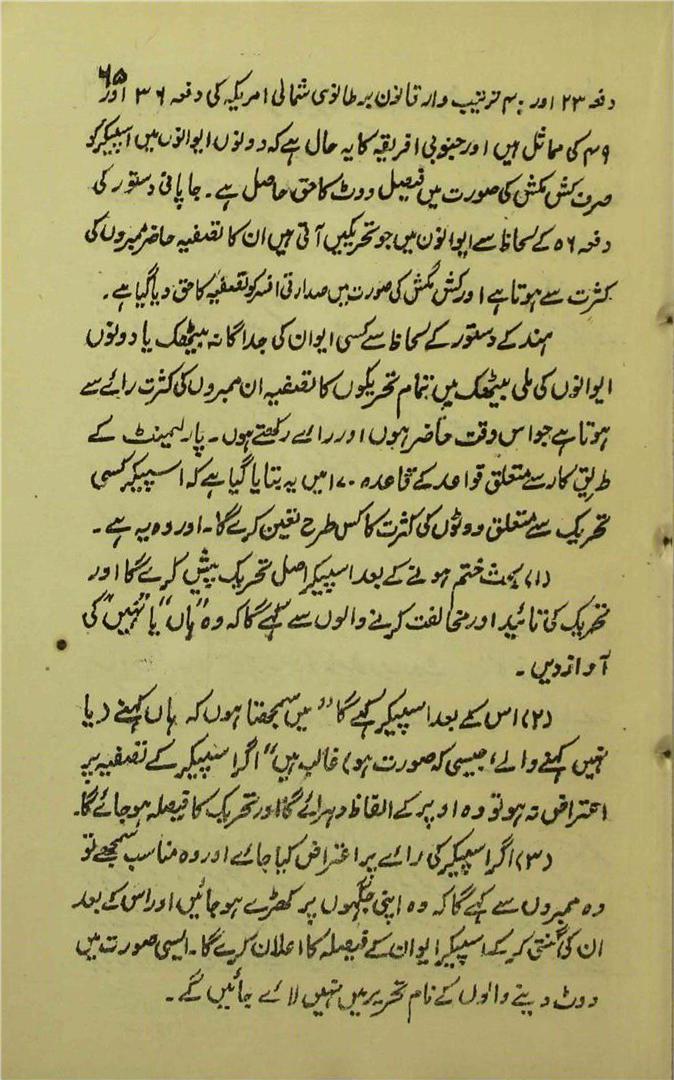 ۶۵
دفعہ ۲۳ اور ۴۰ ترتیب وار قانون برطانوی شمالی امریکہ کی دفعہ ۳۶ اور
۴۹ کی مماثل ہیں اور جنوبی افریقہ کا یہ حال ہے کہ دونوں ایوانوں میں اسپیکر کو
صرف کش مکش کی صورت میں فیصل ووٹ کا حق حاصل ہے۔ جاپانی دستور کی
دفعہ ۵۶ کے لحاظ سے ایوانوں میں جو تحریکیں آتی ہیں ان کا تصفیہ حاضر ممبروں کی
کثرت سے ہوتا ہے اور کش مکش کی صورت میں صدارتی افسر کو تصفیہ کا حق دیا گیا ہے۔
ہند کے دستور کے لحاظ سے کسی ایوان کی جداگانہ بیٹھک یا دونوں
ایوانوں کی ملی بیٹھک میں تمام تحریکوں کا تصفیہ ان ممبروں کی کثرت رائے سے
ہوتا ہے جو اس وقت حاضر ہوں اور رائے رکھتے ہوں۔ پارلیمنٹ کے
طریق کار سے متعلق قواعد کے قاعدہ ۱۷۰ میں یہ بتایا گیا ہے کہ اسپیکر کسی
تحریک سے متعلق ووٹوں کی کثرت کا کس طرح تعین کرے گا۔ اور وہ یہ ہے۔
(۱) بحث ختم ہونے کے بعد اسپیکر اصل تحریک پیش کرے گا اور
تحریک کی تائید اور مخالفت کرنے والوں سے کہے گا کہ وہ "ہاں" یا "نہیں" کی
آواز دیں۔
(۲) اس کے بعد اسپیکر کہے گا "میں سمجھتا ہوں کہ ہاں کہنے (یا
نہیں کہنے والے، جیسی کہ صورت ہو) غالب ہیں" اگر اسپیکر کے تصفیہ پر
اعتراض نہ ہو تو وہ اوپر کے الفاظ دہرائے گا اور تحریک کا فیصلہ ہو جائے گا۔
(۳) اگر اسپیکر کی رائے پر اعتراض کیا جائے اور وہ مناسب سمجھے تو
وہ ممبروں سے کہے گا کہ وہ اپنی جگہوں پر کھڑے ہو جائیں اور اس کے بعد
ان کی گنتی کر کے اسپیکر ایوان کے فیصلہ کا اعلان کرے گا۔ ایسی صورت میں
ووٹ دینے والوں کے نام تحریر میں نہیں لائے جائیں گے۔